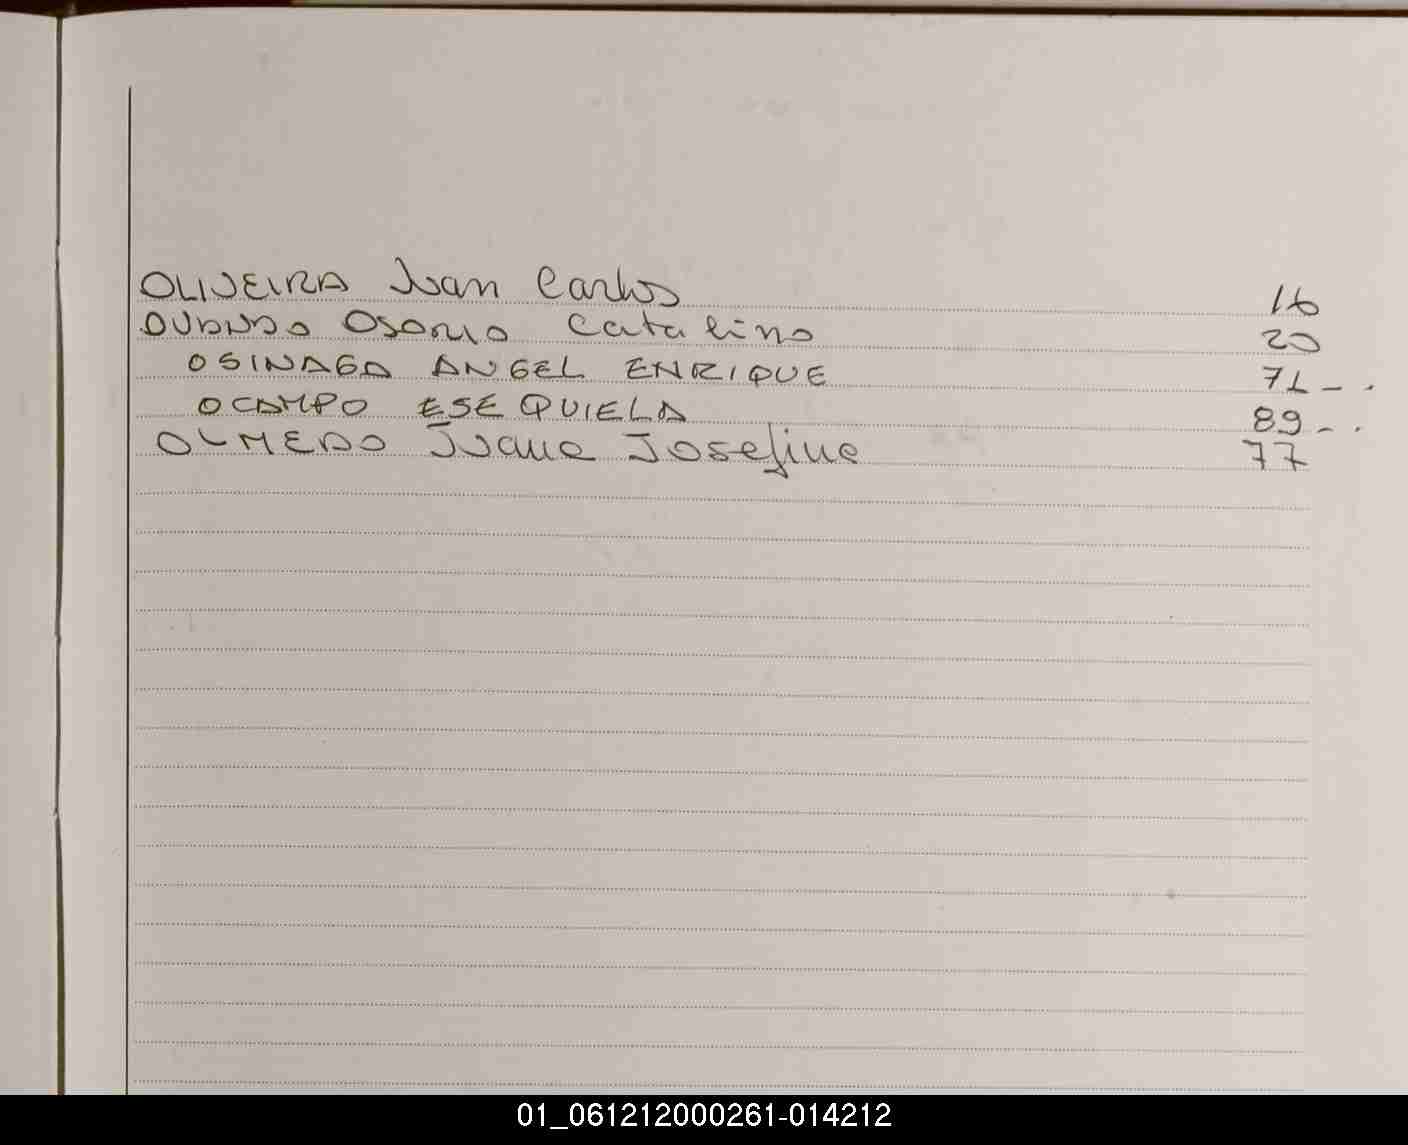 OLIVEIRA Juan Carlos 16
Osorio Catalino 20
OSINAGA ANGEL ENRIQUE 71 - .
OCAMPO ESEQUIELA 89 - .
OLMEDO Juana Josefina 77
01_061212000261-014212